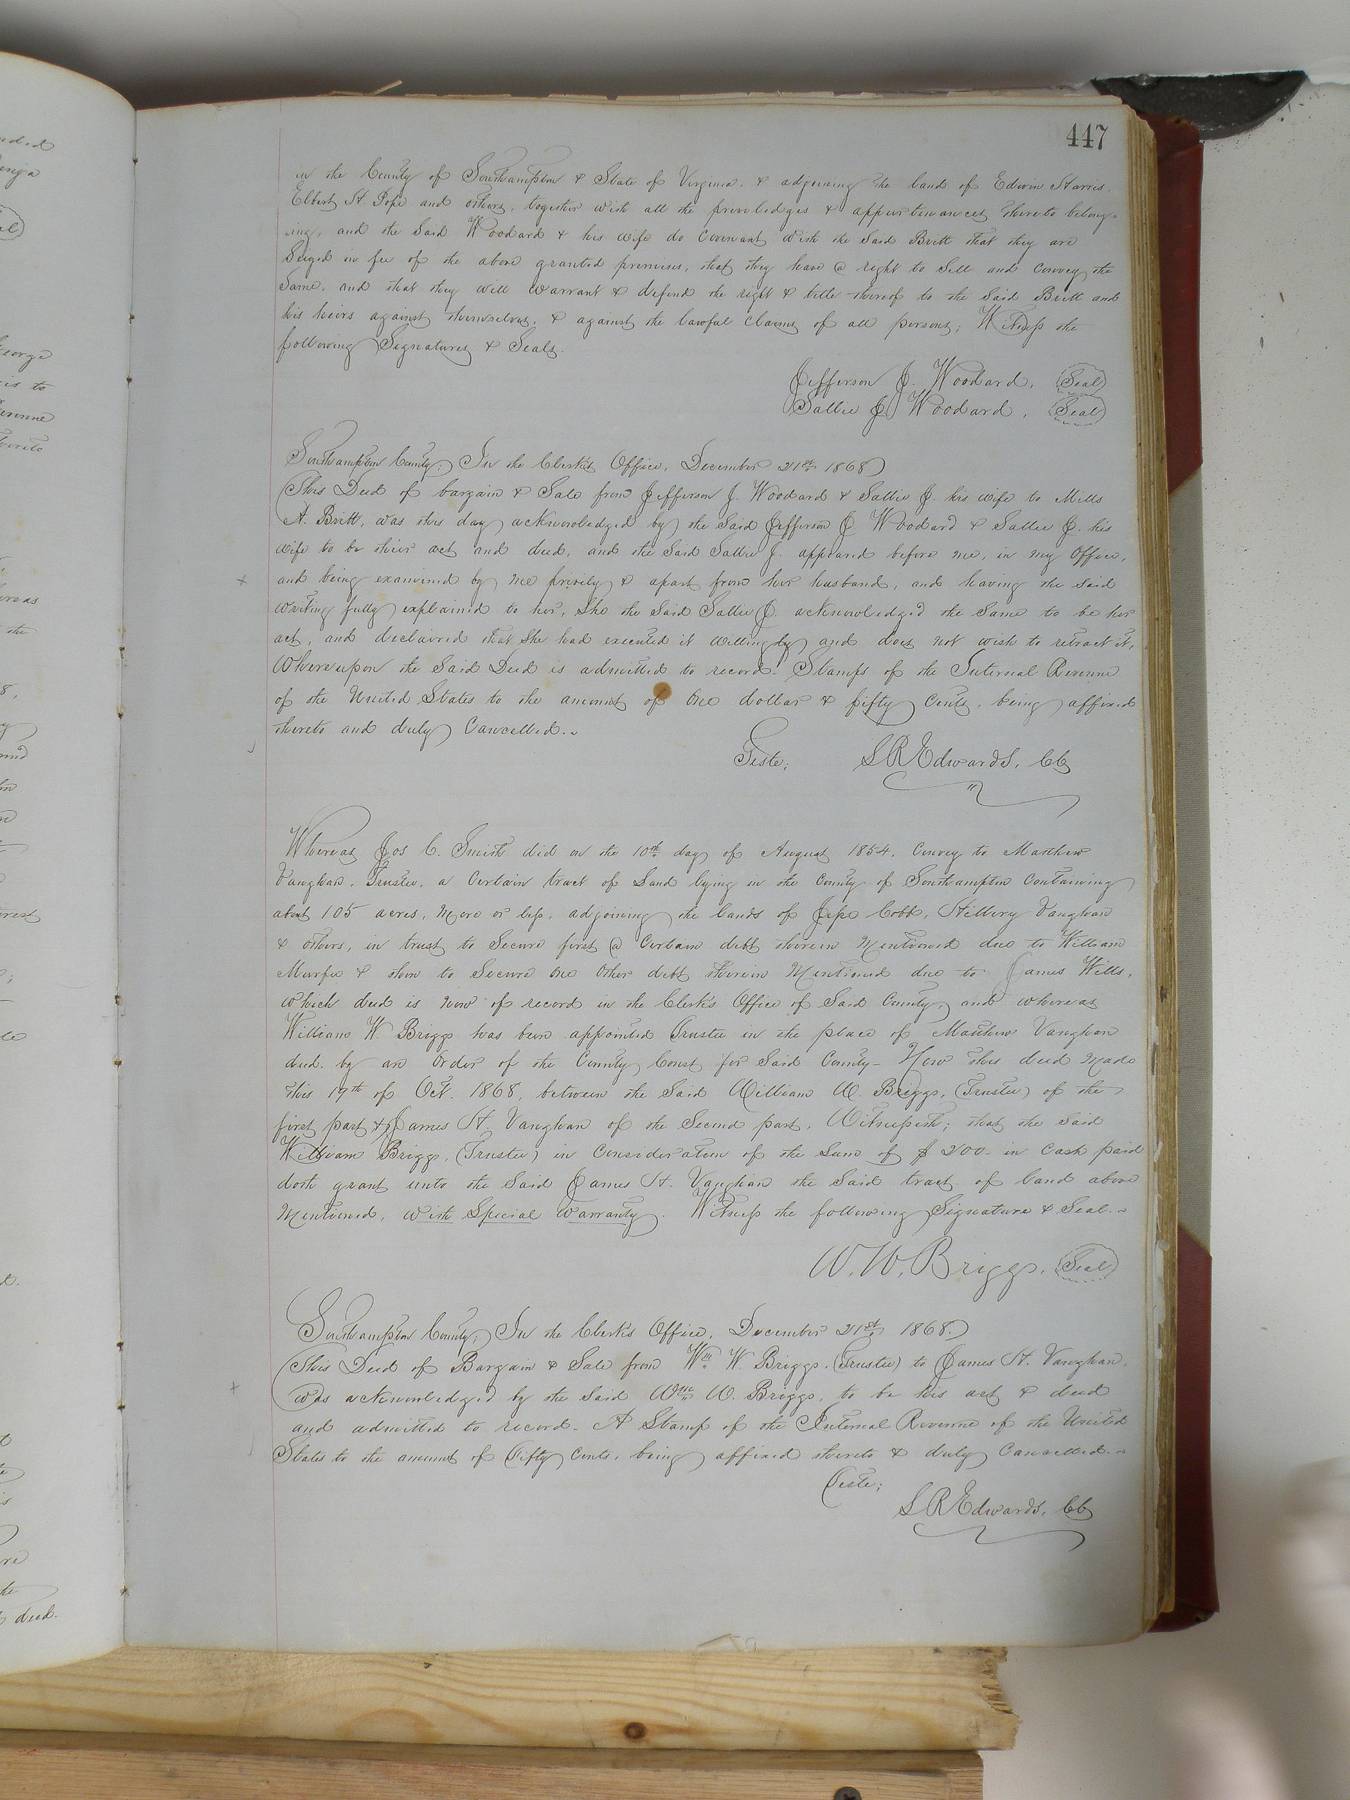 447
in the County of Southampton & State of Virginia, & adjoining the land of Edwin Harris,
Elbert H. Pope and others, together with all the priviledges & appurtenances thereto belong-
ing, and the Said Woodard & his wife do Covenant with the Said Britt that they are
Seized in fee of the above granted premises, that they have a right to Sell and Convey the
Same, and that they will Warrant & defend the right & title thereof to the Said Britt and
his heirs against themselves, & against the lawful Claims of all persons; Witness the
following Signatures & Seals.
Jefferson J. Woodard, Seal
Sallie J. Woodard, Seal
Southampton County, In the Clerk's Office, December 21st 1868
This Deed of bargain & Sale from Jefferson J. Woodard & Sallie J. his wife to Mills
A. Britt, was this day acknowledged by the Said Jefferson J. Woodard & Sallie J. his
wife to be their act and deed, and the Said Sallie J. appeared before me, in my Office,
and being examined by me privily & apart from her husband, and having the said
writing fully explained to her, She the Said Sallie J. acknowledged the Same to be her
act, and declared that She had executed it willingly and does not wish to retract it,
Whereupon the Said Deed is admitted to record. Stamps of the Internal Revenue
of the United States to the amount of One dollar & fifty Cents, being affixed
thereto and duly Cancelled.
Teste; L R Edwards, CC
Whereas Jos C. Smith did on the 10th day of August 1854, Convey to Matthew
Vaughan, Trustee, a Certain tract of Land lying in the County of Southampton Containing
about 105 acres, more or less, adjoining the lands of Jesse Cobb, Hillery Vaughan
& others, in trust to Secure first a Certain debt therein Mentioned due to William
Murfee & then to Secure one Other debt therein Mentioned due to James Wills,
which deed is now of record in the Clerk's Office of Said County, and whereas
William W. Briggs has been appointed Trustee in the place of Matthew Vaughan
decd. by an Order of the County Court for Said County- Now this deed Made
this 19th of Oct. 1868, between the Said William W. Briggs, (Trustee) of the
first part & James H. Vaughan of the Second part, Witnesseth; that the Said
William Briggs, (Trustee) in Consideration of the Sum of $ 200- in Cash paid
doth grant unto the Said James H. Vaughan the Said tract of land above
Mentioned, with Special Warranty. Witness the following Signature & Seal.
W. W. Briggs, Seal
Southampton County, In the Clerk's Office, December 21st 1868.
This Deed of Bargain & Sale from Wm W. Briggs (Trustee) to James H. Vaughan,
was acknowledged by the Said Wm W. Briggs, to be his act & deed
and admitted to record. A Stamp of the Internal Revenue of the United
States to the amount of Fifty Cents, being affixed thereto & duly Cancelled.
Teste;
L R Edwards, CC